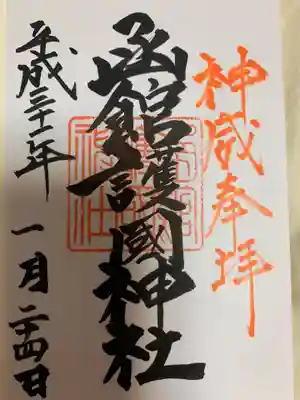 神威奉拝
函館護國神社
平成三十一年
一月二十四日